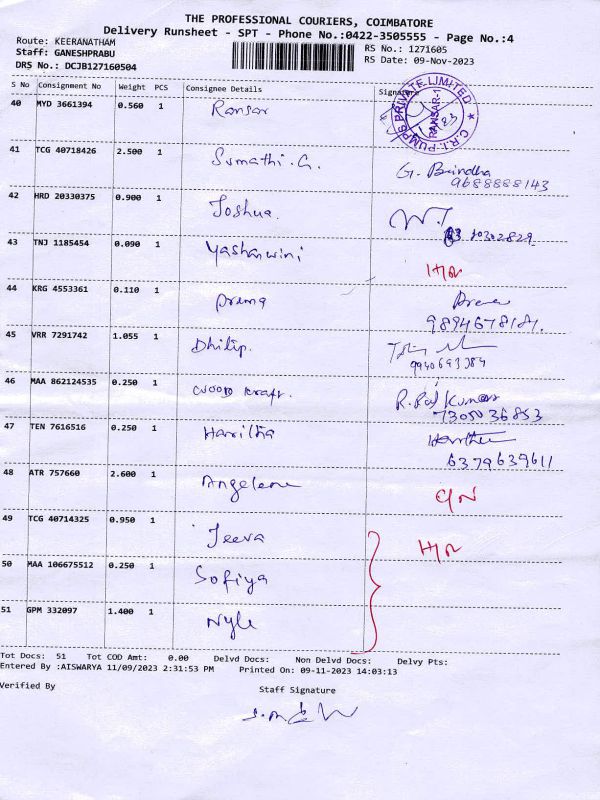 THE PROFESSIONAL COURIERS, COIMBATORE
Delivery Runsheet - SPT - Phone No.:0422-3505555 - Page No.:4
Route: KEERANATHAM
Staff: GANESHPRABU
DRS No.: DCJB127160504
RS No.: 1271605
RS Date: 09-Nov-2023
S No Consignment No Weight PCS Consignee Details Signature
40 MYD 3661394 0.560 1 Ransar
C.R.I-PUMPS PRIVATE LIMITED RANSAR-1
41 TCG 40718426 2.500 1 Sumathi.G. G. Brindha
9688888143
42 HRD 20330375 0.900 1 Joshua.
43 TNJ 1185454 0.090 1 Yashanwini H/R
44 KRG 4553361 0.110 1 prema Prema
45 VRR 7291742 1.055 1 Dhilip.
9940693984
46 MAA 862124535 0.250 1 wood kraft. R. Raj Kumar
7305036853
47 TEN 7616516 0.250 1 Haritha
6379639611
48 ATR 757660 2.600 1 Angelene C/N
49 TCG 40714325 0.950 1 Jeeva H/R
50 MAA 106675512 0.250 1 Sofiya
51 GPM 332097 1.400 1 Nyle
Tot Docs: 51 Tot COD Amt: 0.00 Delvd Docs: Non Delvd Docs: Delvy Pts:
Entered By :AISWARYA 11/09/2023 2:31:53 PM Printed On: 09-11-2023 14:03:13
Verified By
Staff Signature